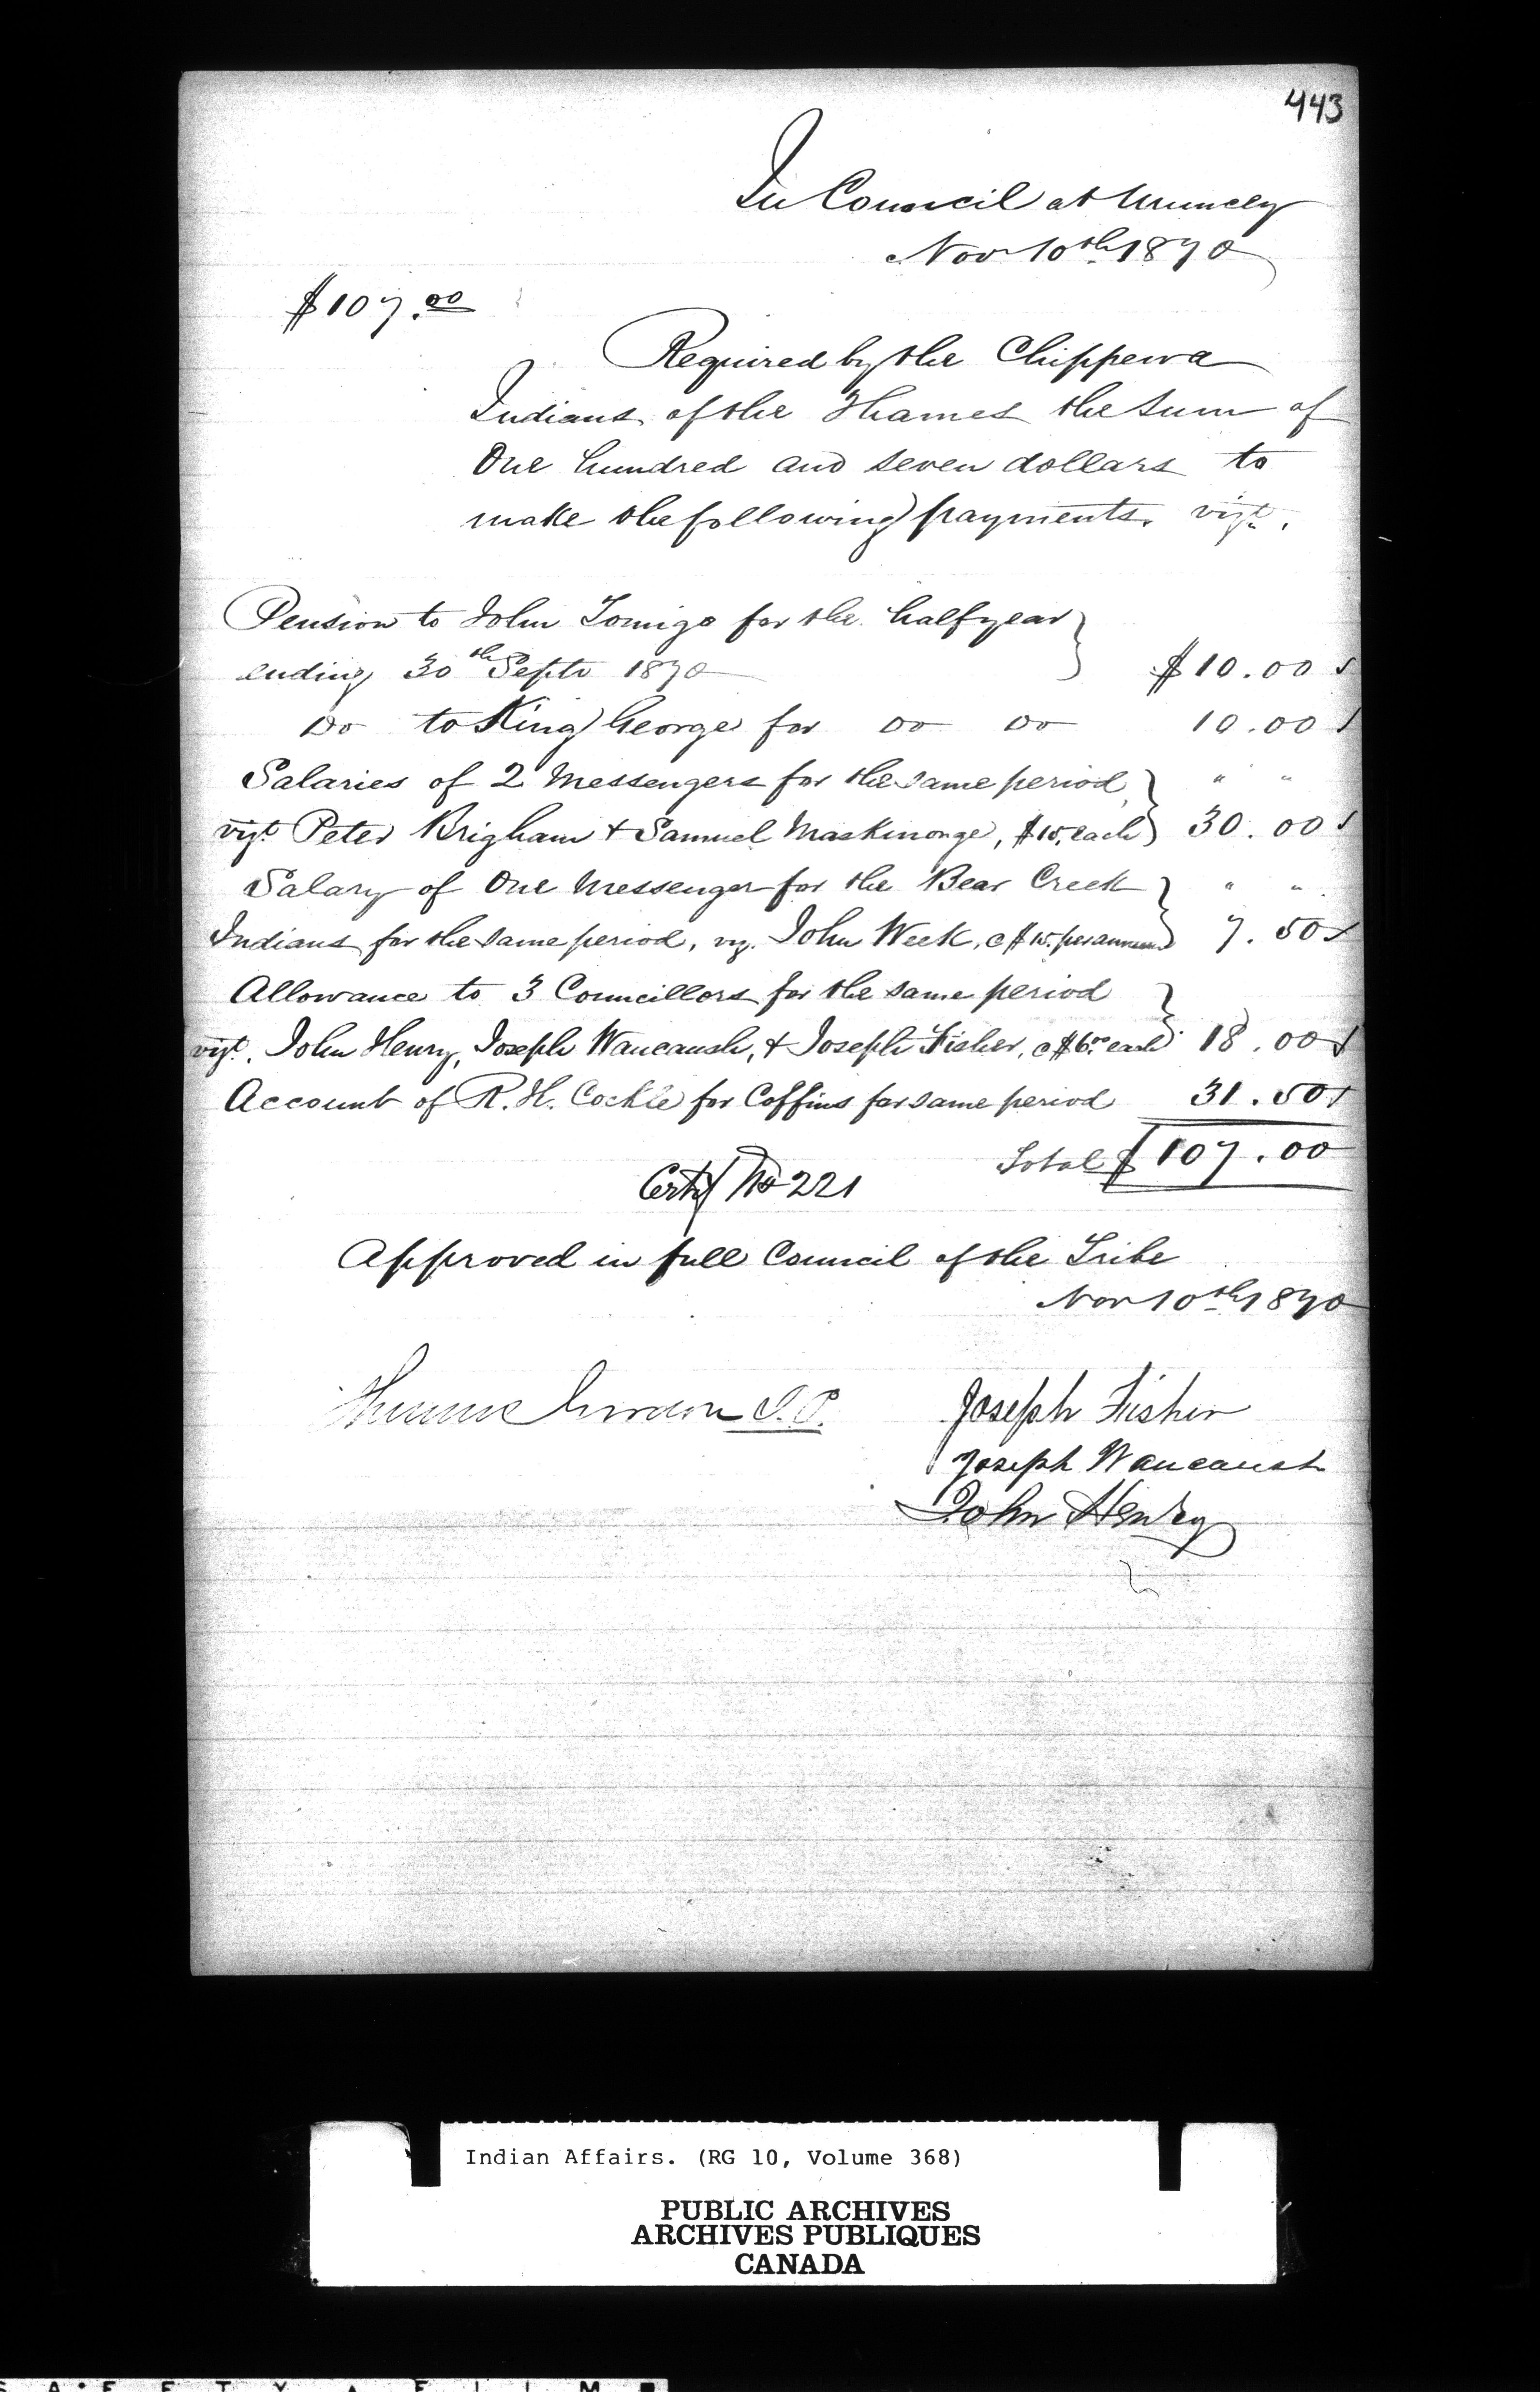 443
In Council at Muncey
Nov 10th 1870
$107.00
Required by the Chippewa
Indians of the Thames the sum of
One hundred and seven dollars to
make the following payments. vizt.
Pension to John Tomigo for the half year
ending 30th Septr 1870 $10.00
Do to King George for Do Do 10.00
Salaries of 2 Messengers for the same period " "
vizt Peter Brigham & Samuel Maskinonge, $15, each 30.00
Salary of One Messenger for the Bear Creek " "
Indians for the same period, viz. John Week, @ $15. per annum 7.50
Allowance to 3 Councillors for the same period
vizt. John Henry, Joseph Waucaush, & Joseph Fisher, @ $6.00 each 18.00
Account of R. H. Cockle for Coffins for same period 31.50
Total $107.00
Certf No 221
Approved in full Council of the Tribe
Nov 10th 1870
Joseph Fisher
Joseph Waucaush
John Henry
Indian Affairs. (RG 10, Volume 368)
PUBLIC ARCHIVES
ARCHIVES PUBLIQUES
CANADA